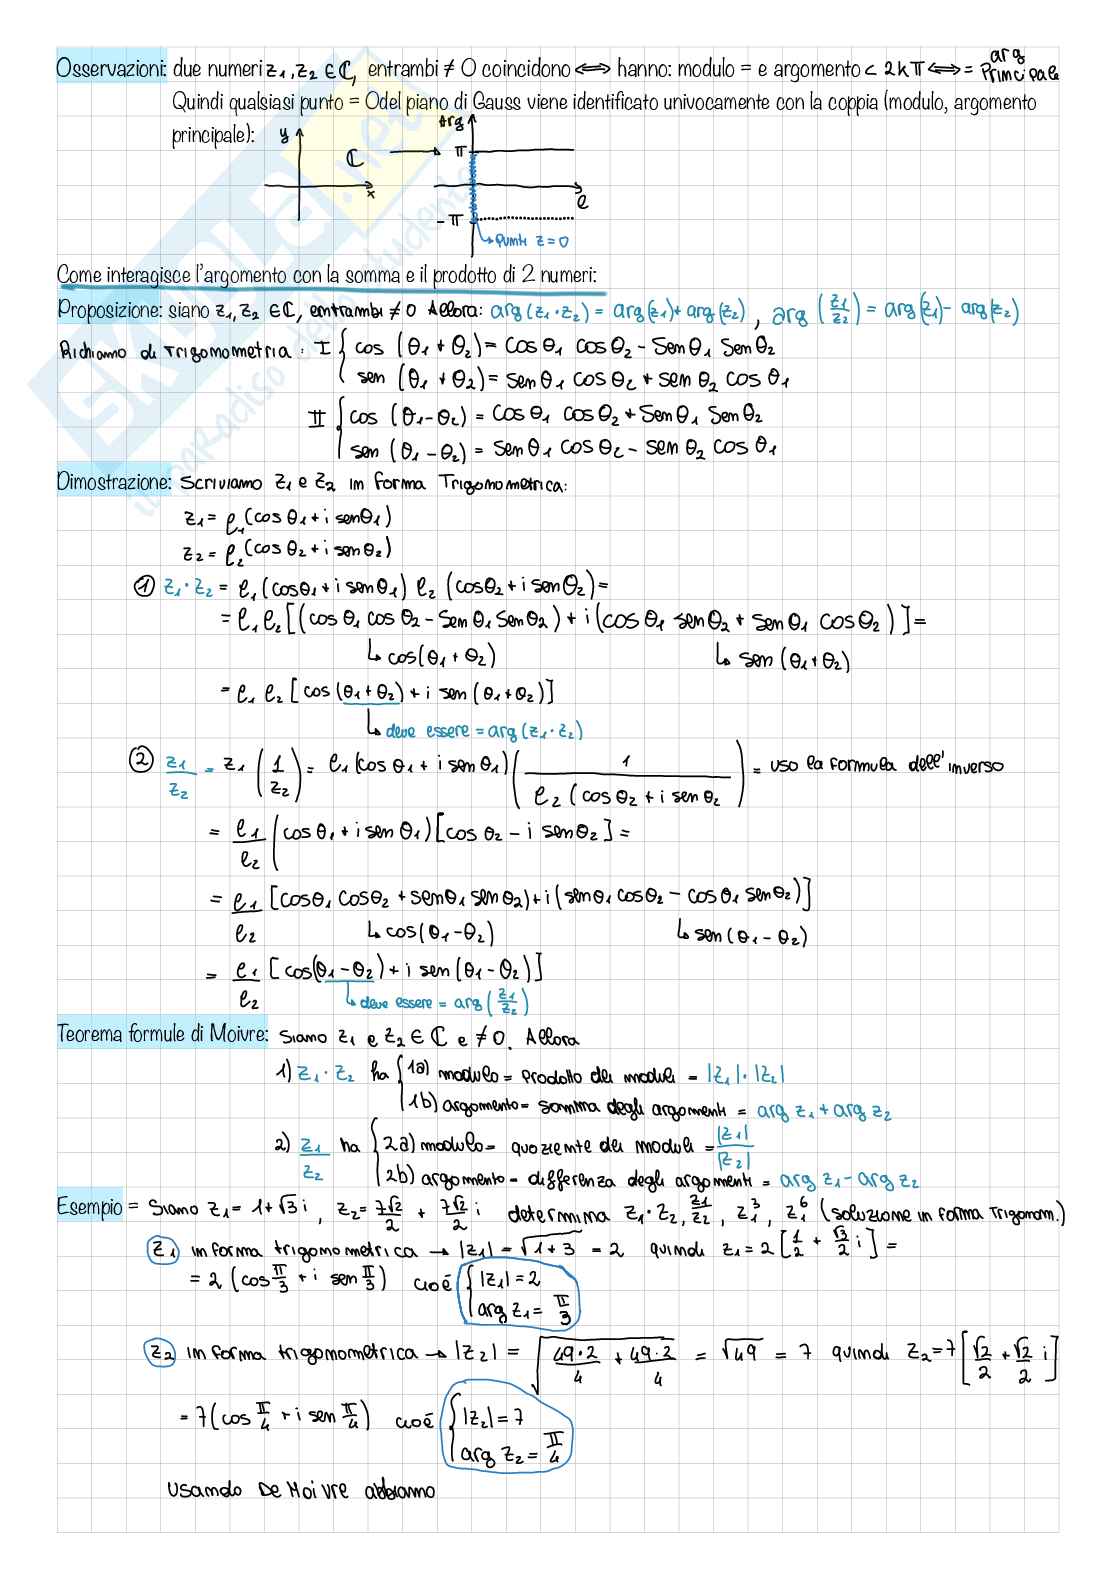 Osservazioni: due numeri z1, z2 ∈ ℂ, entrambi ≠ 0 coincidono ⟺ hanno: modulo = e argomento < 2kπ ⟺ = arg principale
Quindi qualsiasi punto = 0del piano di Gauss viene identificato univocamente con la coppia (modulo, argomento
principale):
y
x
ℂ
Arg
π
-π
ρ
Punti z=0
Come interagisce l'argomento con la somma e il prodotto di 2 numeri:
Proposizione: siano z1, z2 ∈ ℂ, entrambi ≠ 0 Allora: arg(z1·z2) = arg(z1) + arg(z2), arg(z1/z2) = arg(z1) - arg(z2)
Richiamo di Trigonometria: I { cos (θ1 + θ2) = cos θ1 cos θ2 - sen θ1 sen θ2
sen (θ1 + θ2) = sen θ1 cos θ2 + sen θ2 cos θ1
II { cos (θ1 - θ2) = cos θ1 cos θ2 + sen θ1 sen θ2
sen (θ1 - θ2) = sen θ1 cos θ2 - sen θ2 cos θ1
Dimostrazione: Scriviamo z1 e z2 in forma Trigonometrica:
z1 = ρ1 (cos θ1 + i sen θ1)
z2 = ρ2 (cos θ2 + i sen θ2)
① z1·z2 = ρ1 (cos θ1 + i sen θ1) ρ2 (cos θ2 + i sen θ2) =
= ρ1 ρ2 [(cos θ1 cos θ2 - sen θ1 sen θ2) + i (cos θ1 sen θ2 + sen θ1 cos θ2)] =
↳ cos(θ1 + θ2) ↳ sen (θ1 + θ2)
= ρ1 ρ2 [cos (θ1 + θ2) + i sen (θ1 + θ2)]
↳ deve essere = arg (z1·z2)
② z1/z2 = z1 (1/z2) = ρ1 (cos θ1 + i sen θ1) (1/ρ2 (cos θ2 + i sen θ2) = uso la formula dell'inverso
= ρ1/ρ2 (cos θ1 + i sen θ1) [cos θ2 - i sen θ2] =
= ρ1/ρ2 [cos θ1 cos θ2 + sen θ1 sen θ2) + i (sen θ1 cos θ2 - cos θ1 sen θ2)]
↳ cos(θ1 - θ2) ↳ sen (θ1 - θ2)
= ρ1/ρ2 [cos(θ1 - θ2) + i sen (θ1 - θ2)]
↳ deve essere = arg (z1/z2)
Teorema formule di Moivre: siano z1 e z2 ∈ ℂ e ≠ 0. Allora
1) z1·z2 ha { 1a) modulo = prodotto dei moduli = |z1|·|z2|
1b) argomento = somma degli argomenti = arg z1 + arg z2
2) z1/z2 ha { 2a) modulo = quoziente dei moduli = |z1|/|z2|
2b) argomento = differenza degli argomenti = arg z1 - arg z2
Esempio = Siano z1 = 1+√3 i, z2 = 7√2/2 + 7√2/2 i determina z1·z2, z1/z2, z1^3, z1^6 (soluzione in forma Trigonom.)
z1 in forma trigonometrica → |z1| = √1+3 = 2 quindi z1 = 2 [1/2 + √3/2 i] =
= 2 (cos π/3 + i sen π/3) cioè { |z1| = 2
arg z1 = π/3
z2 in forma trigonometrica → |z2| = √49·2/4 + 49·2/4 = √49 = 7 quindi z2 = 7 [√2/2 + √2/2 i]
= 7 (cos π/4 + i sen π/4) cioè { |z2| = 7
arg z2 = π/4
Usando De Moivre abbiamo
SKUOLA.net
il paradiso dello studente